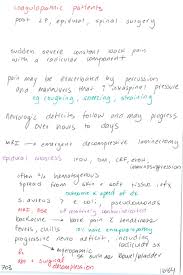 coagulopathic patients
post LP, epidural, spinal surgery
sudden severe constant back pain
with a radicular component
pain may be exacerbated by percussion
and maneuvers that ↑ intraspinal pressure
eg coughing, sneezing, straining
neurologic deficits follow and may progress
over hours to days
MRI → emergent decompressive laminectomy
epidural abscess IVDU, DM, CRF, EtOH,
immunosuppression
often % hematogenous
spread from skin + soft tissue
outcome α speed of dx
S. aureus > E coli, pseudomonas
MRI, ESR
backbone → back pain & tenderness
fevers, chills
progressive neuro deficit, including
radicular sx
+ bowel/bladder
abx + surgical decompression
703